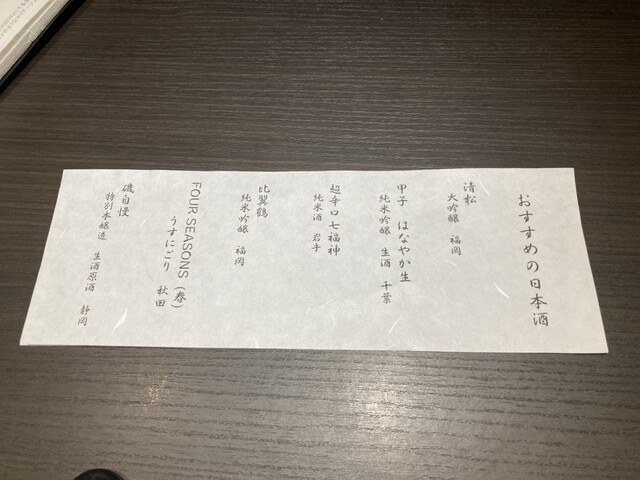 おすすめの日本酒
清松
大吟醸 福岡
甲子 はなやか生
純米吟醸 生酒 千葉
超辛口 七福神
純米酒 岩手
比翼鶴
純米吟醸 福岡
FOUR SEASONS (春)
うすにごり 秋田
磯自慢
特別本醸造 生酒原酒 静岡